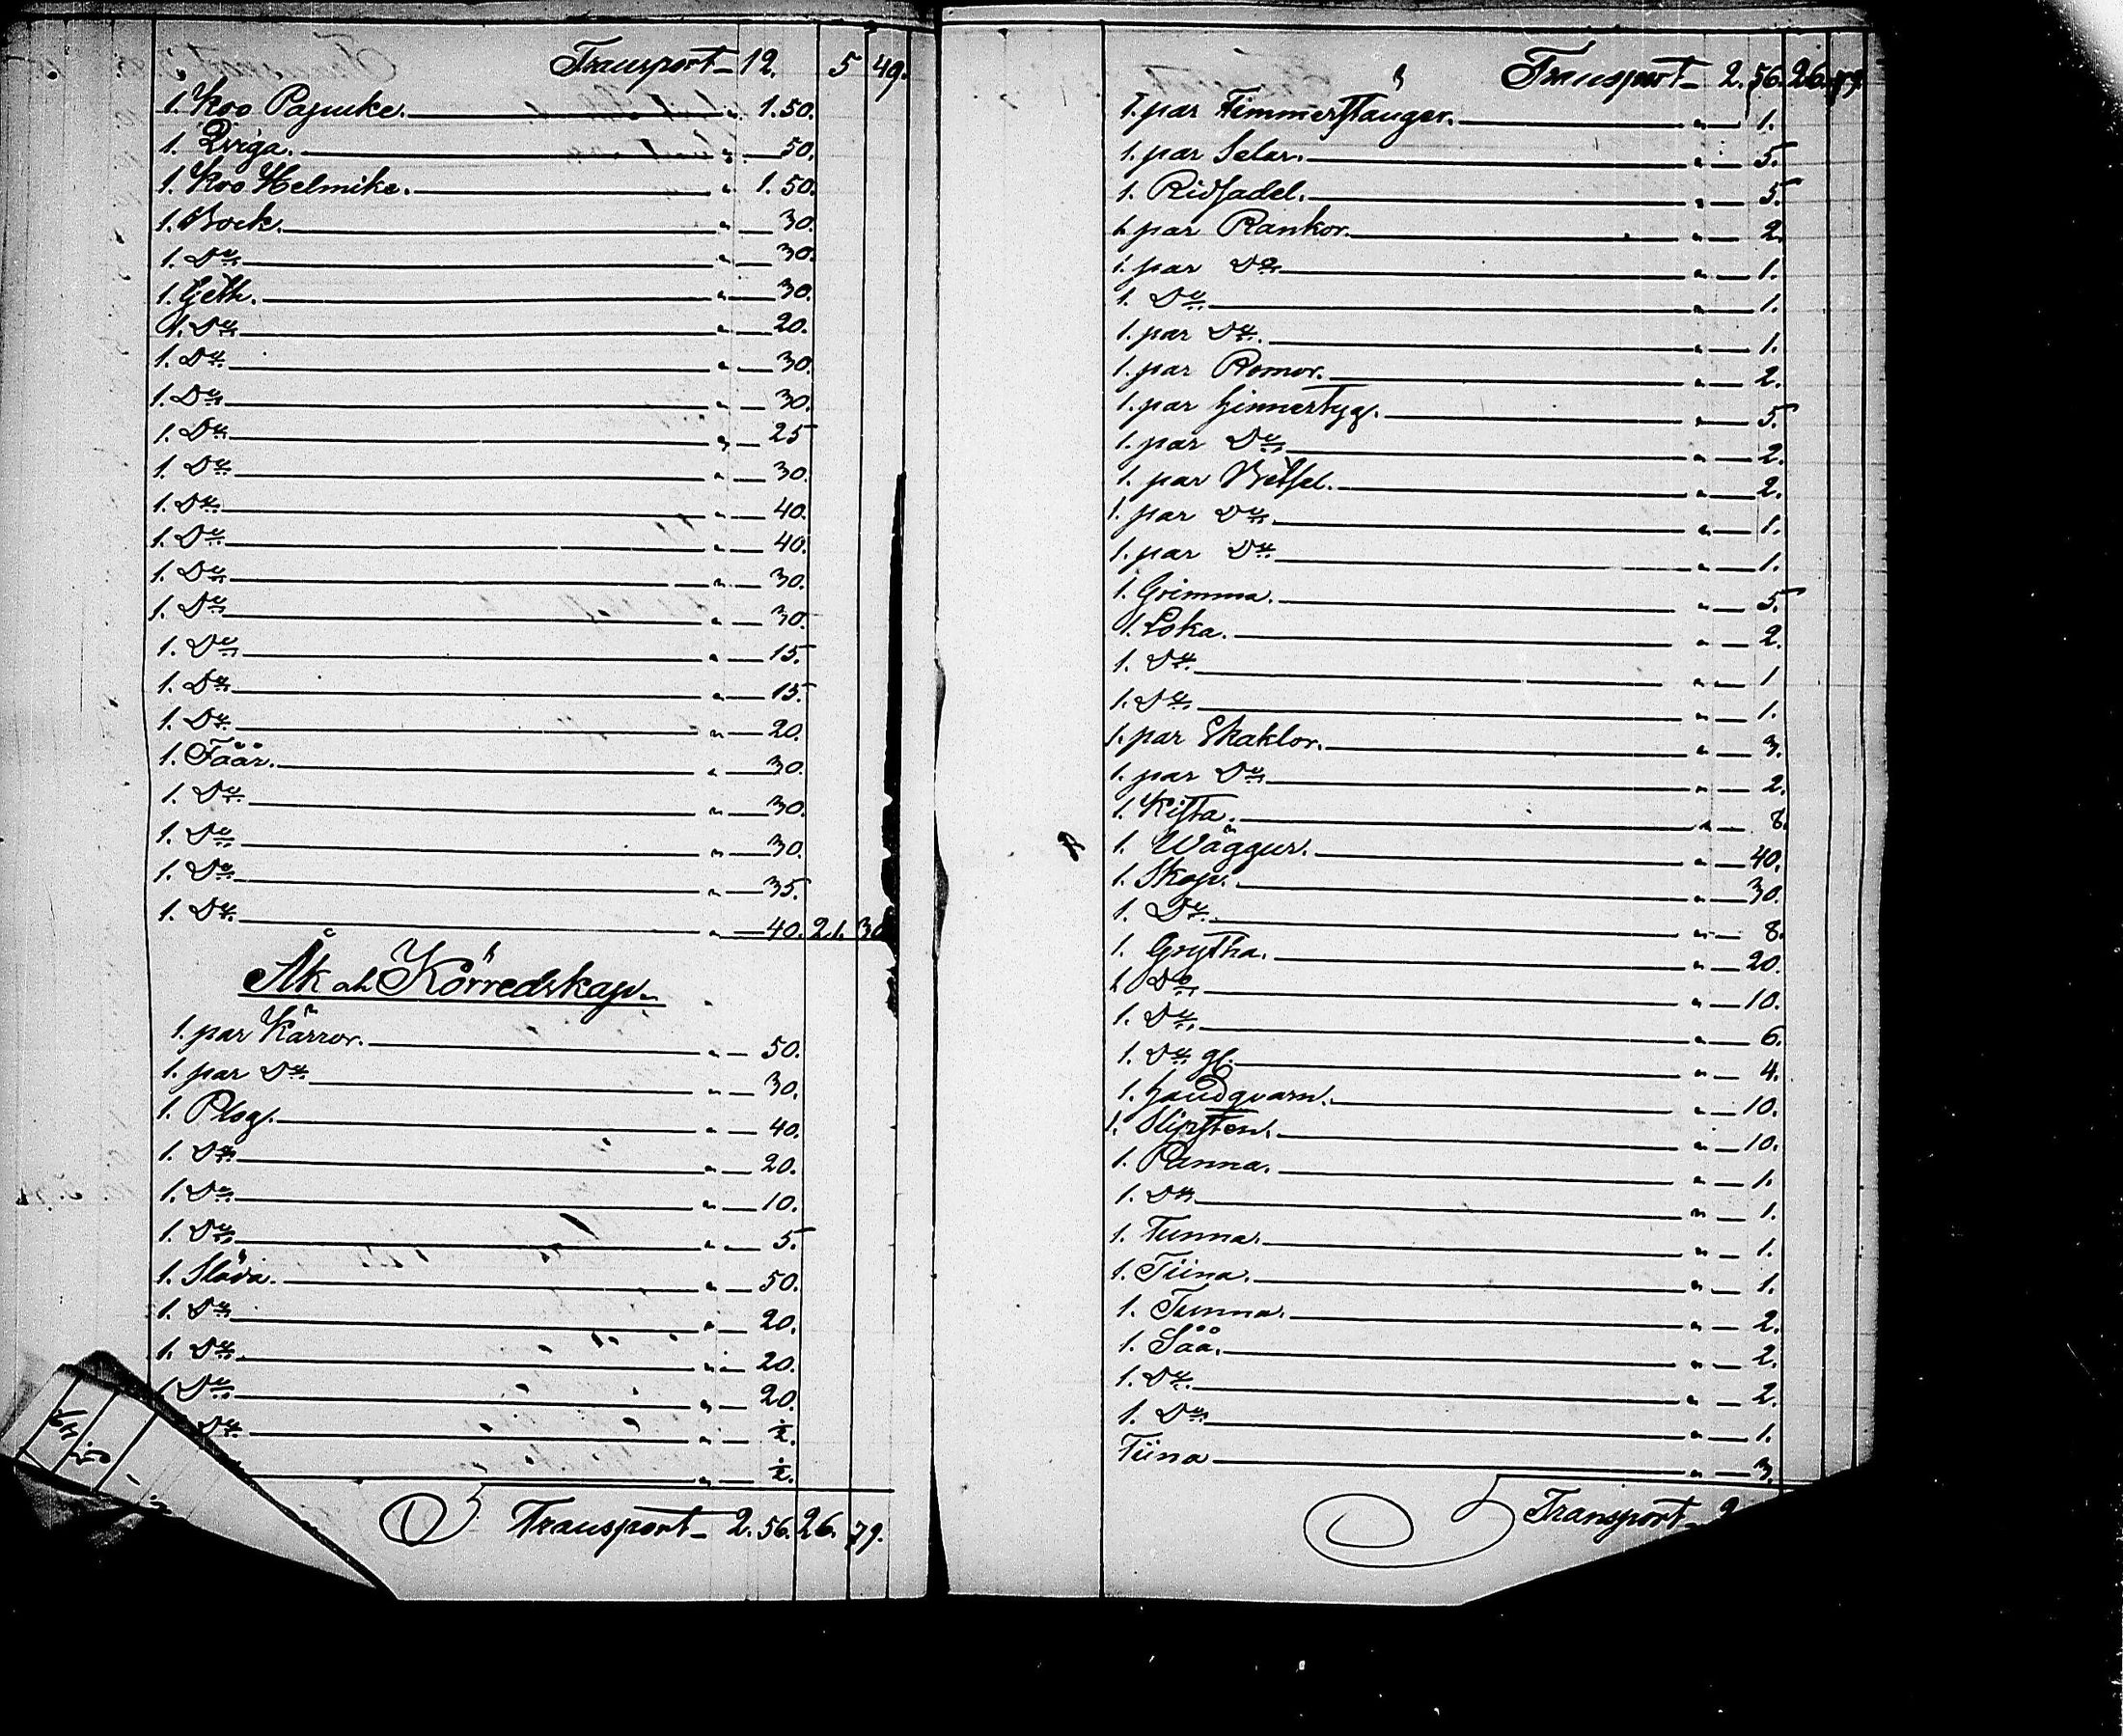 Transport 12. 5 49.
1. Koo Pajuuke. " 1. 50.
1. Qviga. " 50.
1. Koo Helmike. " 1. 50.
1. Bock. " 30.
1. Do " 30.
1. Geth. " 30.
1. Do " 20.
1. Do " 30.
1. Do " 30.
1. Do " 25
1. Do " 30.
1. Do " 40.
1. Do " 40.
1. Do " 30.
1. Do " 30.
1. Do " 15.
1. Do " 15.
1. Do " 20.
1. Fåår. " 30.
1. Do " 30.
1. Do " 30.
1. Do " 35.
1. Do " 40. 21. 30
Åk och Körredskap.
1. par Kärror. " 50.
1. par Do " 30.
1. Plog. " 40.
1. Do " 20.
1. Do " 10.
1. Do " 5.
1. Släda. " 50.
1. Do " 20.
1. Do " 20.
1. Do " 20.
Do "
"
Transport 2. 56. 26. 79.
Transport 2. 56. 26. 79.
1. par Timmerstänger. " 1.
1. par Selar. " 5.
1. Ridsadel. " 5.
1. par Rankor. " 2.
1. par Do " 1.
1. Do " 1.
1. par Do " 1.
1. par Remor. " 2.
1. par Hinnertyg. " 5.
1. par Do " 2.
1. par Betsel. " 2.
1. par Do " 1.
1. par Do " 1.
1. Grimma. " 5.
1. Loka. " 2.
1. Do " 1
1. Do " 1.
1. par Skaklor. " 3.
1. par Do " 2.
1. Kista. " 8.
1. Wäggur. " 40.
1. Skop. " 30.
1. Do " 8.
1. Grytha. " 20.
1. Do " 10.
1. Do " 6.
1. Do gl. " 4.
1. Handqvarn. " 10.
1. Slipsten. " 10.
1. Panna. " 1.
1. Do " 1.
1. Tunna. " 1.
1. Tiina. " 1.
1. Tunna. " 2.
1. Såå. " 2.
1. Do " 2.
1. Do " 1.
Tiina " 3.
Transport